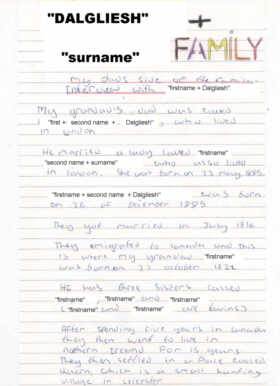 "DALGLIESH"
+
FAMILY
"surname"
My dads side of the family
Interview with "firstname + Dalgliesh"
My grandad's dad was called
"first + second name + . Dalgliesh" , who lived
in London
He married a lady called "firstname"
"second name + surname" who also lived
in london. She was born on 23 may 1885.
"firstname + second name + Dalgliesh" was born
on 26 of December 1885
They got married in July 1916
They emigrated to canada and this
is where my grandad "firstname"
was born on 23 october
He has three sisters called
"firstname" , "firstname" and "firstname"
( "firstname" and "firstname" are twins)
After spending five years in canada
they then went to live in
nothern Ireland For 15 years.
They then settled in a place called
which is a small hunting
village in Leicester